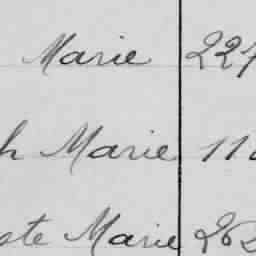 Marie 227
h Marie 110
ste Marie 262